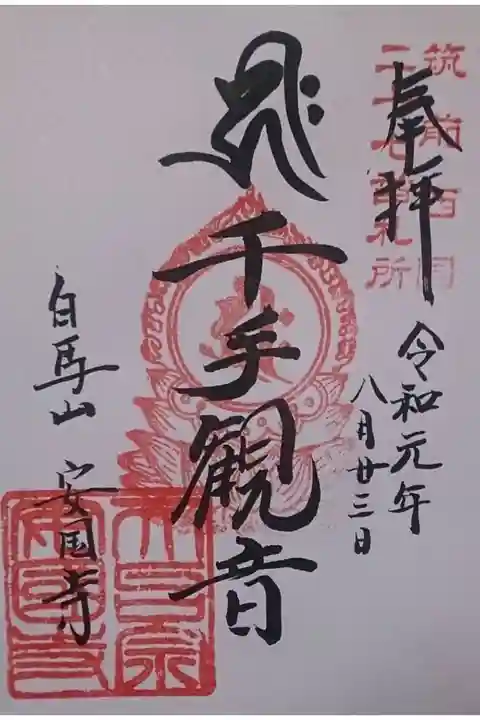 奉拝
筑前西国
二十七番札所
令和元年
八月廿三日
千手観音
白馬山 安国寺